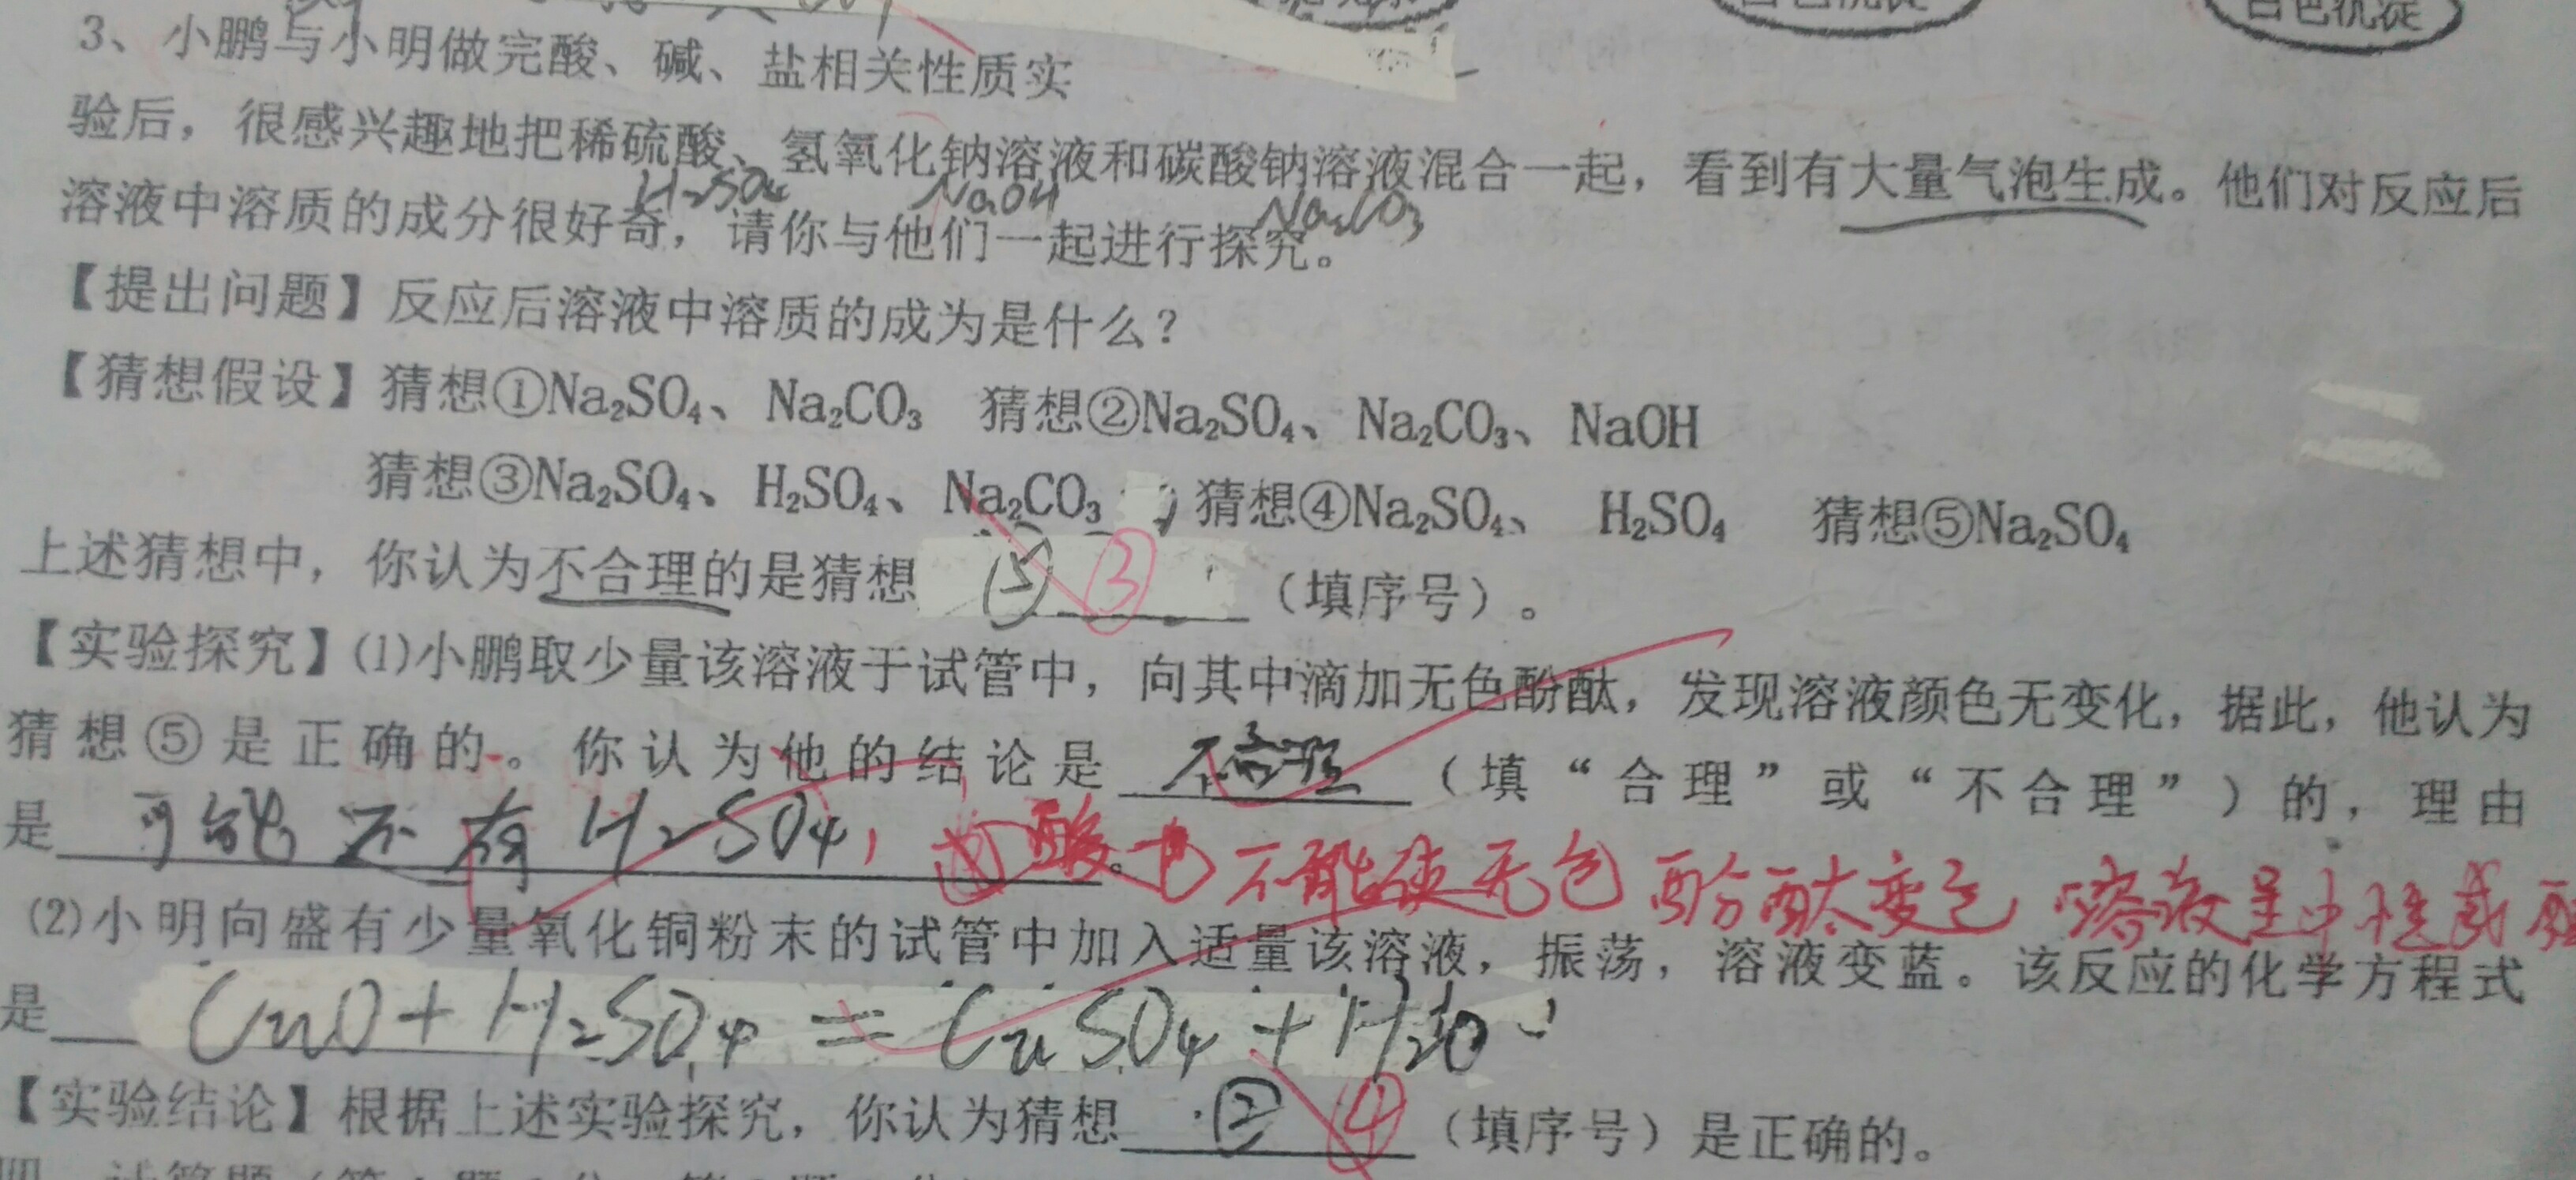 白色沉淀
3、小鹏与小明做完酸、碱、盐相关性质实
验后，很感兴趣地把稀硫酸、氢氧化钠溶液和碳酸钠溶液混合一起，看到有大量气泡生成。他们对反应后
H₂SO₄ NaOH Na₂CO₃
溶液中溶质的成分很好奇，请你与他们一起进行探究。
【提出问题】反应后溶液中溶质的成为是什么？
【猜想假设】猜想①Na₂SO₄、Na₂CO₃ 猜想②Na₂SO₄、Na₂CO₃、NaOH
猜想③Na₂SO₄、H₂SO₄、Na₂CO₃ 猜想④Na₂SO₄、 H₂SO₄ 猜想⑤Na₂SO₄
上述猜想中，你认为不合理的是猜想 ⑤ ③ （填序号）。
【实验探究】(1)小鹏取少量该溶液于试管中，向其中滴加无色酚酞，发现溶液颜色无变化，据此，他认为
猜想⑤是正确的。你认为他的结论是 不合理 （填“合理”或“不合理”）的，理由
是 可能还有H₂SO₄， 酸也不能使无色酚酞变色 溶液呈中性或酸。
(2)小明向盛有少量氧化铜粉末的试管中加入适量该溶液，振荡，溶液变蓝。该反应的化学方程式
是 CuO+H₂SO₄=CuSO₄+H₂O
【实验结论】根据上述实验探究，你认为猜想 ② ④ （填序号）是正确的。